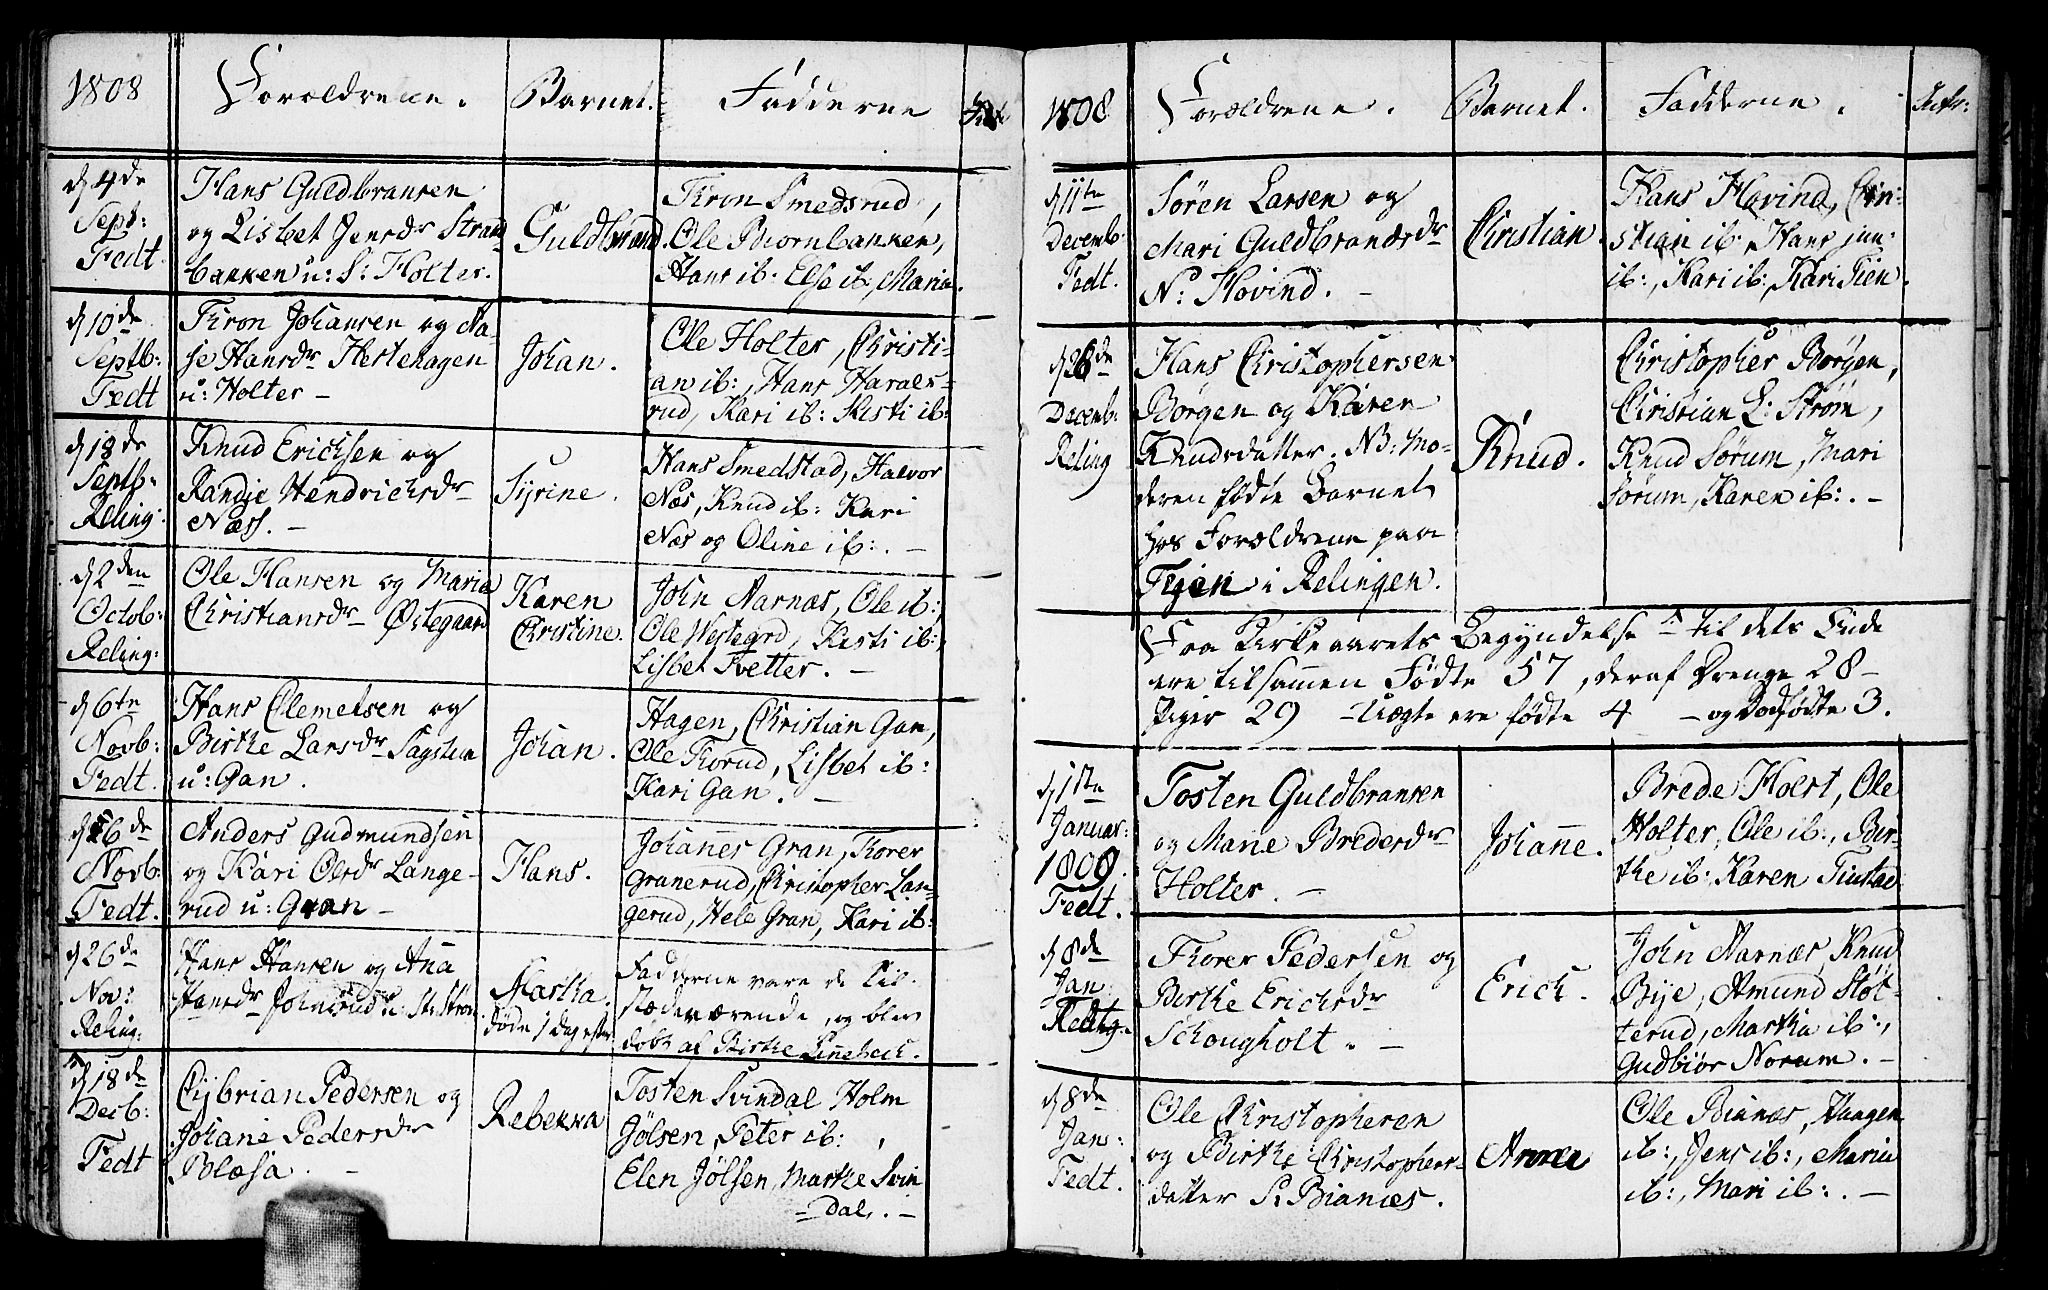 1808
Forældrene.
Barnet.
Fadderne
d 4de
Septb:
Fedt.
Hans Guldbransen
og Lisbet Jensdr Strand
bakken u: S: Holter.
Guldbrand
Thron Smedsrud,
Ole Biørnbakken,
Hans ib: Else ib, Maria.
d 10de
Septb:
Fedt
Thron Johansen og Aa-
se Hansdr Hestehagen
u: Holter –
Johan.
Ole Holter, Christi-
an ib:, Hans Haraes-
rud, Kari ib: Kisti ib:
d 18de
Septb:
Reling:
Knud Erichsen og
Randje Hendrichsdr
Næss. –
Syrine.
Hans Smedstad, Halvor
Næs, Knud ib: Kari
Næs og Oline ib:. –
d 2den
Octob:
Reling:
Ole Hansen og Maria
Christiansdr Østegaard
Karen
Christine.
John Narnæs, Ole ib:,
Ole Westegrd, Kisti ib:,
Lisbet Tvetter. –
d 6te
Novb:
Fedt.
Hans Clemetsen og
Birthe Larsdr Sagstuen
u: Gan.
Johan.
Hagen, Christian Gan,
Ole Thorud, Lisbet ib:
Kari Gan. –
d 6de
Novb:
Fedt.
Anders Gudmundsen
og Kari Olsdr Lange-
rud u: Gran –
Hans.
Johannes Gran, Thorer
Granerud, Christopher Lan-
gerud, Hele Gran, Kari ib:
d 26de
Nov:
Reling:
Hans Hansen og Ana
Hansdr Johnsrud u: St: Strøm
Martha.
døde 1 dag efter
Fadderne vare de til-
stædeværende, og blev
døbt af Birthe Linnebech.
d 18de
Decb:
Fedt
Cybrian Pedersen og
Johane Pedersdr
Blæsa. –
Rebekka
Tosten Svindal Holm
Jølsen, Peter ib:,
Elen Jølsen, Marthe Svin
– dal. –
1808
Forældrene.
Barnet.
Fadderne.
Intr:
d 11te
Decemb:
Fedt.
Søren Larsen og
Mari Guldbransdr
N: Hovind. –
Christian.
Hans Hovind, Chri-
stian ib:, Hans jun:
ib:, Kari ib:, Kari Tien.
d 26de
Decemb:
Reling
Hans Christophersen
Børgen og Karen
Knudsdatter. NB: Mo-
deren fødte Barnet
hos Forældrene paa
Tejen i Relingen.
Knud.
Christopher Børgen,
Christian L: Strøm,
Knud Sørum, Mari
Sørum, Karen ib:. –
Fra Kirkeaarets Begyndelse til dets Ende
ere tilsammen Fødte 57, deraf Drenge 28 –
Piger 29 – Uægte ere fødte 4 – og Dødfødte 3.
d 1ste
Januar:
1809.
Fedt.
Tosten Guldbransen
og Marie Bredesdr
Holter. –
Johanne.
Brede Holst, Ole
Holter, Ole ib:, Bir-
the ib: Karen Tiustad
d 8de
Jan:
Thorer Pedersen og
Birthe Erichsdr
Schougholt. –
Erich.
John Narnæs, Knud
Bye, Amund Sløt-
terud, Martha ib:,
Gudbiør Norum. –
d 8de
Jan:
Fedt.
Ole Christophersen
og Birthe Christophers-
datter S. Bianæs.
Anne
Ole Bianæs, Haagen
ib:, Jens ib:, Maria
ib:, Mari ib:. –